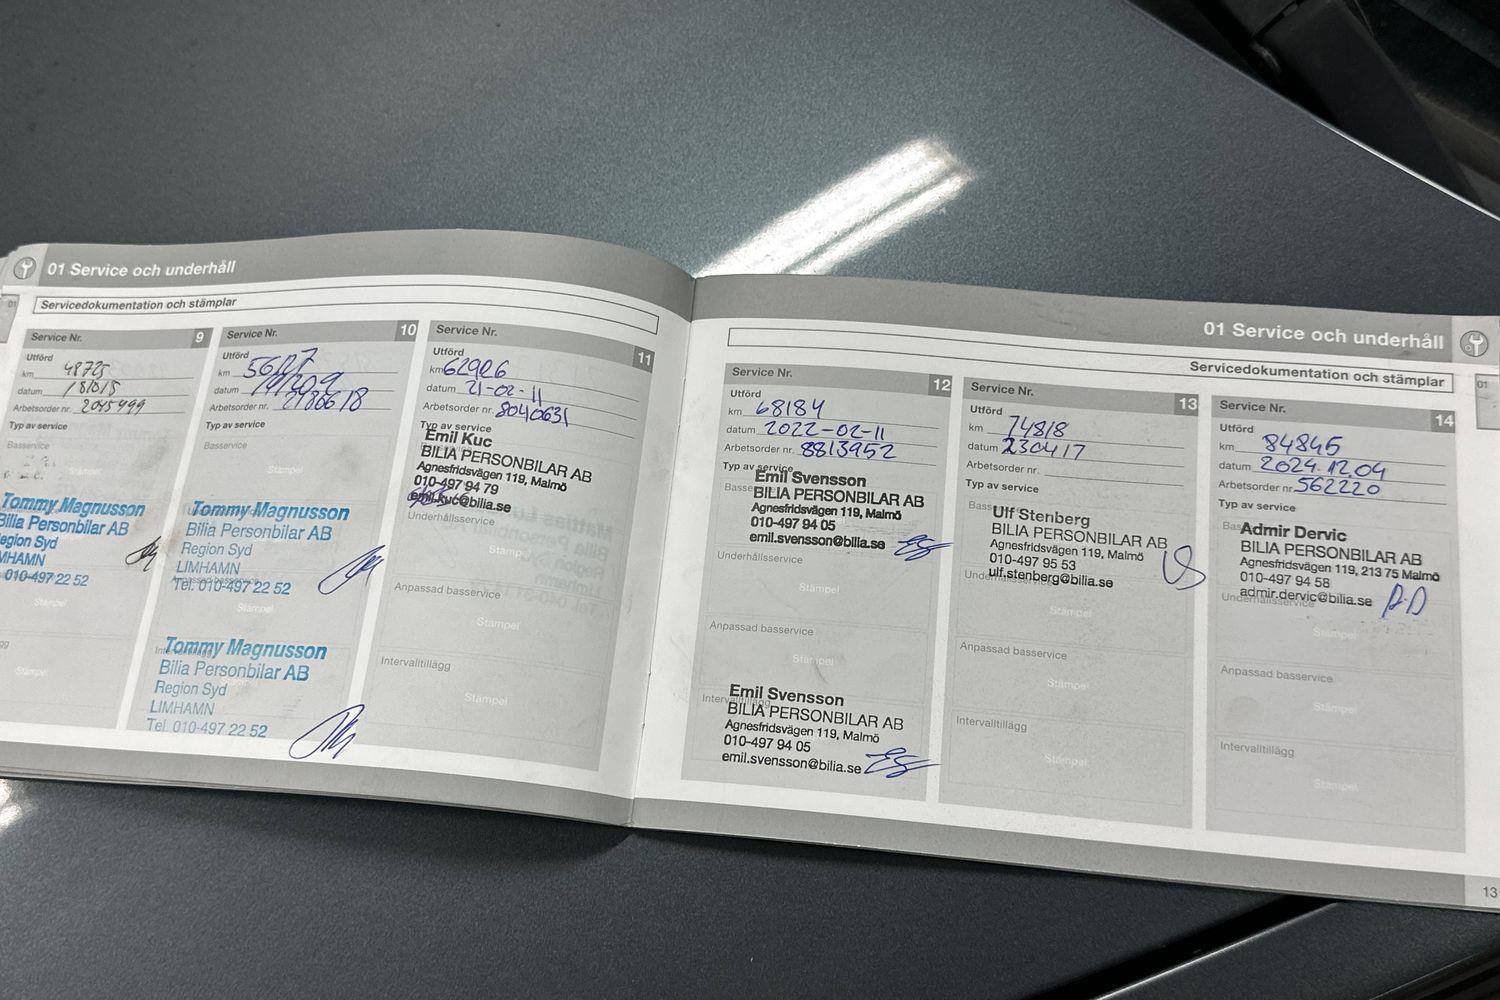 01 Service och underhåll
01
Servicedokumentation och stämplar
Service Nr. 9
Utförd
km 48725
datum
Arbetsorder nr. 2045499
Typ av service
Basservice
Stämpel
Tommy Magnusson
Bilia Personbilar AB
Region Syd
LIMHAMN
010-497 22 52
Stämpel
Stämpel
Service Nr. 10
Utförd
km
datum
Arbetsorder nr. 2186618
Typ av service
Basservice
Stämpel
Tommy Magnusson
Bilia Personbilar AB
Region Syd
LIMHAMN
Tel. 010-497 22 52
Anpassad basservice
Stämpel
Tommy Magnusson
Intervalltillägg
Bilia Personbilar AB
Region Syd
LIMHAMN
Tel. 010-497 22 52
Service Nr. 11
Utförd
km 62906
datum 21-02-11
Arbetsorder nr. 8040631
Typ av service
Emil Kuc
BILIA PERSONBILAR AB
Agnesfridsvägen 119, Malmö
010-497 94 79
emil.kuc@bilia.se
Underhållsservice
Stämpel
Anpassad basservice
Stämpel
Intervalltillägg
Stämpel
01 Service och underhåll
Servicedokumentation och stämplar
01
Service Nr. 12
Utförd
km 68184
datum 2022-02-11
Arbetsorder nr. 8813952
Typ av service
Emil Svensson
BILIA PERSONBILAR AB
Agnesfridsvägen 119, Malmö
010-497 94 05
emil.svensson@bilia.se ES
Underhållsservice
Stämpel
Anpassad basservice
Stämpel
Emil Svensson
Intervalltillägg
BILIA PERSONBILAR AB
Agnesfridsvägen 119, Malmö
010-497 94 05
emil.svensson@bilia.se ES
Service Nr. 13
Utförd
km 74818
datum 230417
Arbetsorder nr.
Typ av service
Ulf Stenberg
BILIA PERSONBILAR AB
Agnesfridsvägen 119, Malmö
010-497 95 53
ulf.stenberg@bilia.se
Underhållsservice
Stämpel
Anpassad basservice
Stämpel
Intervalltillägg
Stämpel
Service Nr. 14
Utförd
km 84845
datum 2024.12.04
Arbetsorder nr. 562220
Typ av service
Admir Dervic
BILIA PERSONBILAR AB
Agnesfridsvägen 119, 213 75 Malmö
010-497 94 58
admir.dervic@bilia.se A.D
Underhållsservice
Stämpel
Anpassad basservice
Stämpel
Intervalltillägg
Stämpel
13